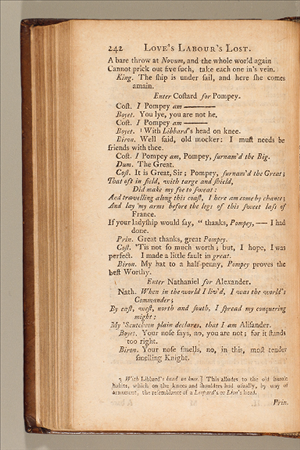 242 LOVE'S LABOUR'S LOST.
A bare throw at Novum, and the whole world again
Cannot prick out five such, take each one in's vein.
King. The ship is under sail, and here she comes
amain.
Enter Costard for Pompey.
Cost. I Pompey am ———
Boyet. You lye, you are not he.
Cost. I Pompey am ———
Boyet. ¹ With Libbard's head on knee.
Biron. Well said, old mocker: I must needs be
friends with thee.
Cost. I Pompey am, Pompey, surnam'd the Big.
Dum. The Great.
Cost. It is Great, Sir; Pompey, surnam'd the Great;
That oft in field, with targe and shield,
Did make my foe to sweat:
And travelling along this coast, I here am come by chance;
And lay my arms before the legs of this sweet lass of
France.
If your ladyship would say, “ thanks, Pompey, — I had
done.
Prin. Great thanks, great Pompey.
Cost. 'Tis not so much worth; but, I hope, I was
perfect. I made a little fault in great.
Biron. My hat to a half-penny, Pompey proves the
best Worthy.
Enter Nathaniel for Alexander.
Nath. When in the world I liv'd, I was the world's
Commander;
By east, west, north and south, I spread my conquering
might:
My 'Scutcheon plain declares, that I am Alisander.
Boyet. Your nose says, no, you are not; for it stands
too right.
Biron. Your nose smells, no, in this, most tender
smelling Knight.
¹ With Libbard's head on knee.] This alludes to the old heroic
habits, which on the knees and shoulders had usually, by way of
ornament, the resemblance of a Leopard's or Lion's head.
Prin.